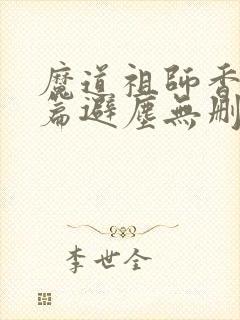 魔道祖師香
篇避塵無刪
李世全